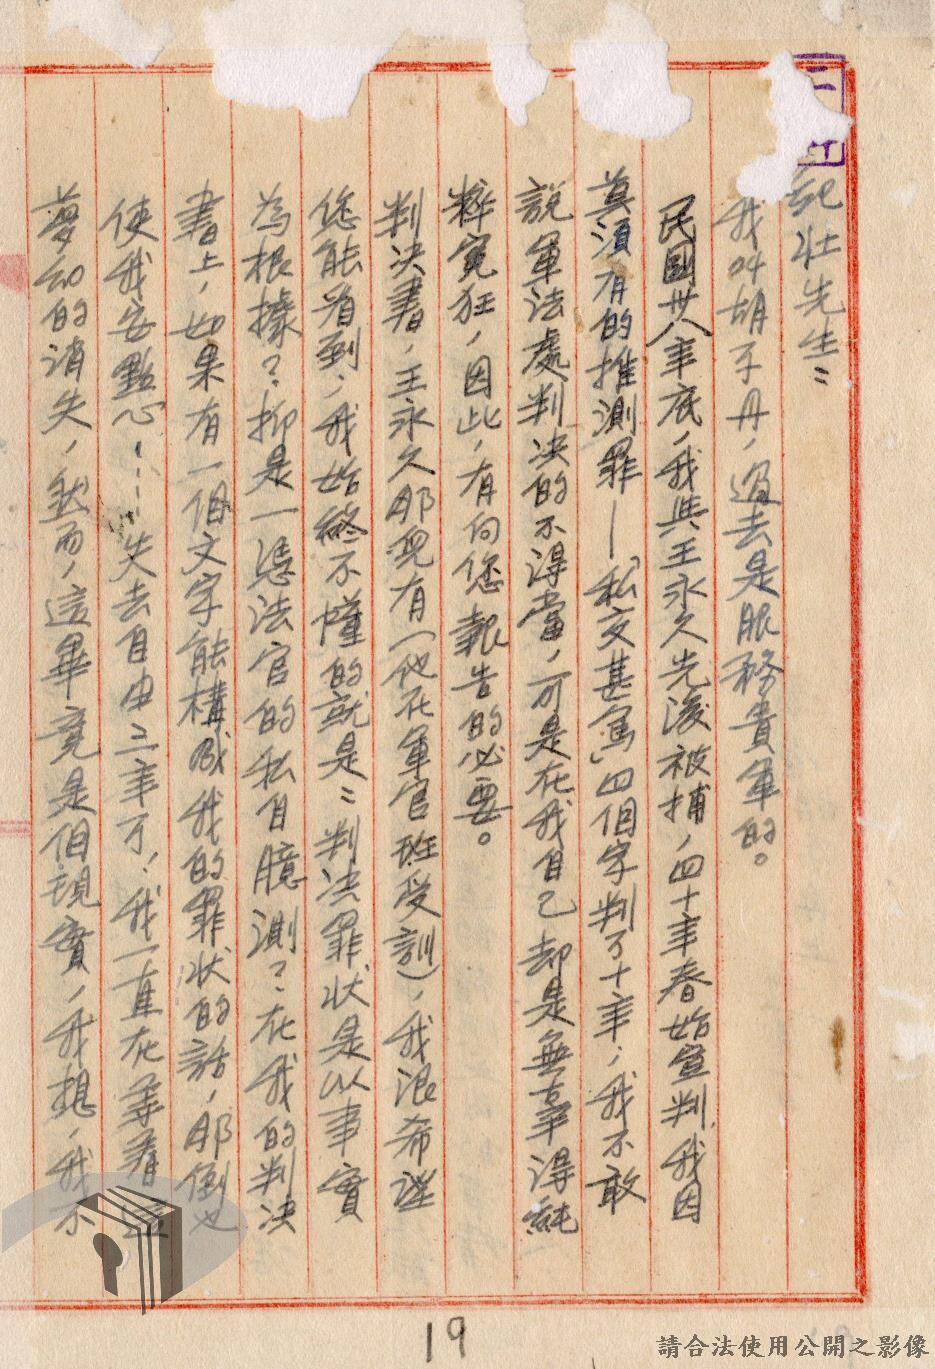 紀壯先生：
我叫胡子丹，過去是服務貴軍的。
民國卅八年底，我與王永久先後被捕，四十年春始宣判，我因
莫須有的推測罪—「私交甚篤」四個字判了十年，我不敢
說軍法處判決的不得當，可是在我自己却是無辜得純
粹冤狂，因此，有向您報告的必要。
判決書，王永久那兒有（他在軍官班受訓），我很希望
您能看到，我始終不懂的就是：判決罪狀是以事實
為根據？抑是一憑法官的私自臆測？在我的判決
書上，如果有一個文字能構成我的罪狀的話，那倒也
使我安點心……失去自由二年了！我一直在等着這
夢幻的消失，然而，這畢竟是個現實，我想，我不
19
請合法使用公開之影像